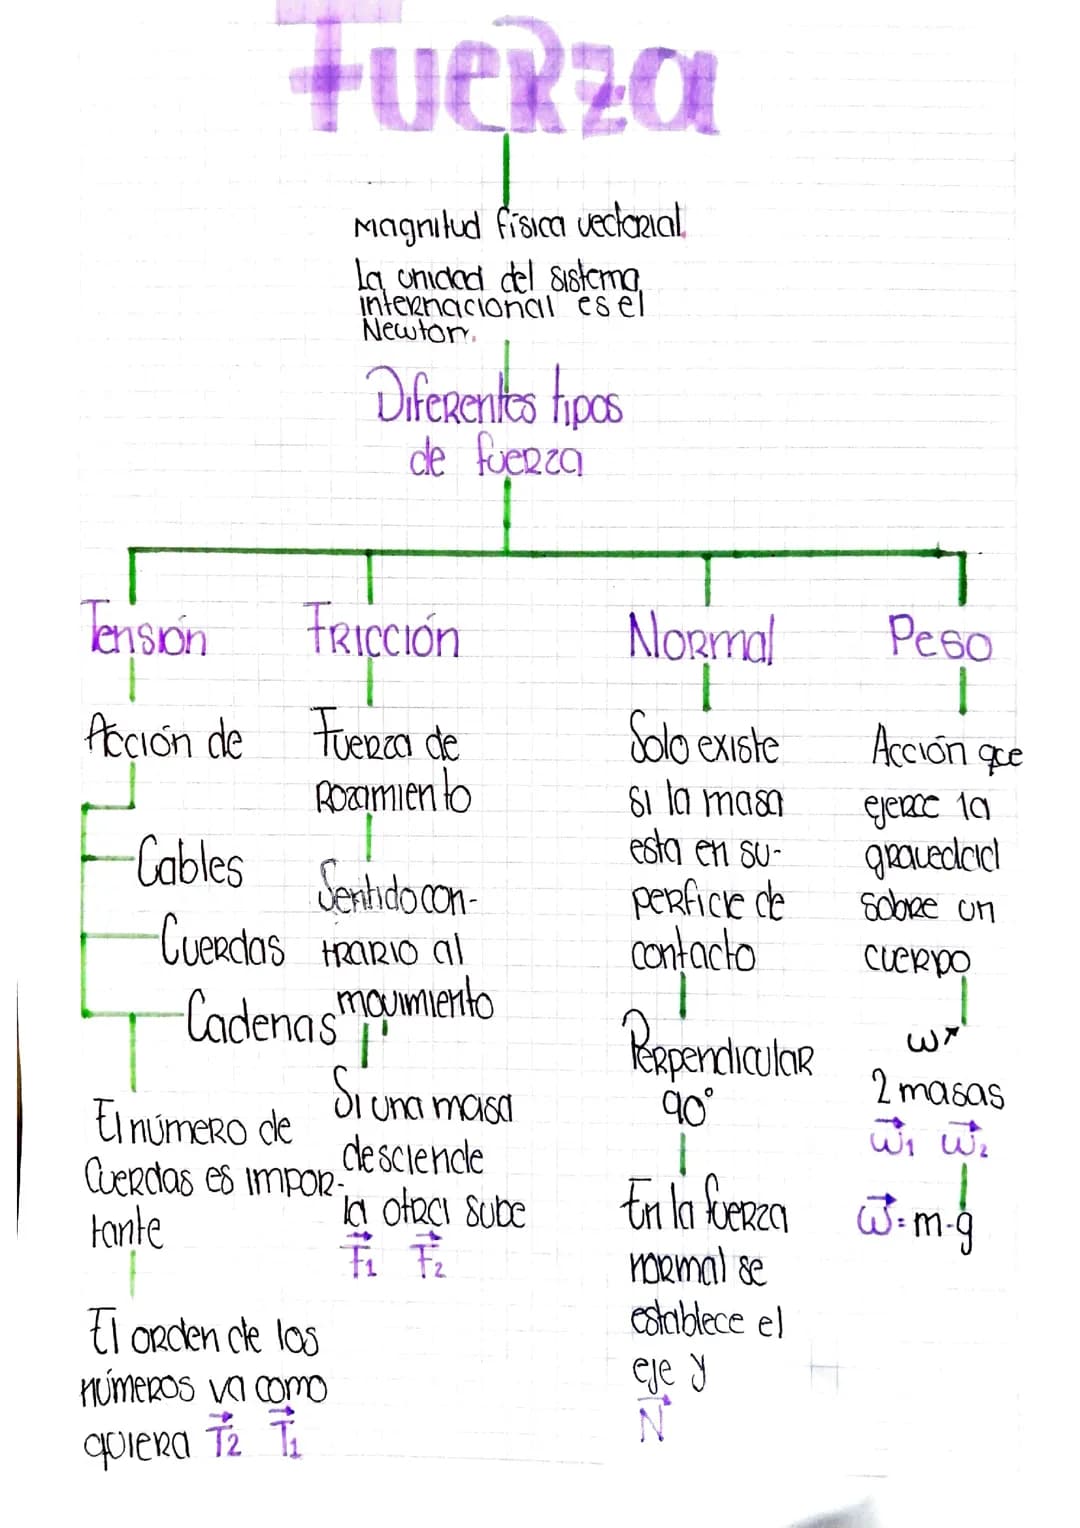 Fuerza
Magnitud física vectorial.
La unidad del sistema
internacional es el
Newton.
Diferentes tipos
de fuerza
Tensión
Acción de
Cables
Cuerdas
Cadenas
El número de
Cuerdas es impor-
tante
El orden de los
números va como
quiera T⃗2 T⃗1
Fricción
Fuerza de
Rozamiento
Sentido con-
trario al
movimiento
Si una masa
desciende
la otra sube
F⃗1 F⃗2
Normal
Solo existe
si la masa
esta en su-
perficie de
contacto
Perpendicular
90°
En la fuerza
normal se
establece el
eje y
N⃗
Peso
Acción que
ejerce la
gravedad
sobre un
cuerpo
ω↗
2 masas
ω⃗1 ω⃗2
ω⃗=m·g